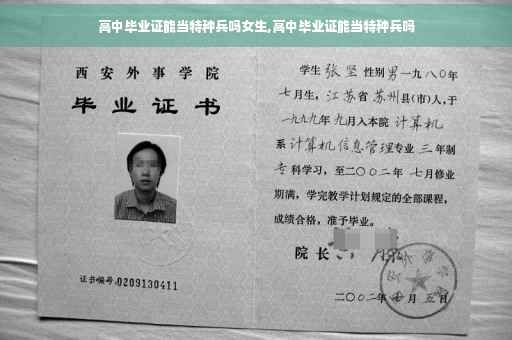 高中毕业证能当特种兵吗女生,高中毕业证能当特种兵吗
西安外事学院
毕业证书
证书编号:0209130411
学生 张坚 性别 男 一九八〇年
七月生, 江苏省 苏州 县(市)人,于
一九九九年 九月入本院 计算机
系 计算机信息管理 专业 三 年制
专 科学习,至二〇〇二年 七月修业
期满,学完教学计划规定的全部课程,
成绩合格,准予毕业。
院长
二〇〇二年 七 月 五 日